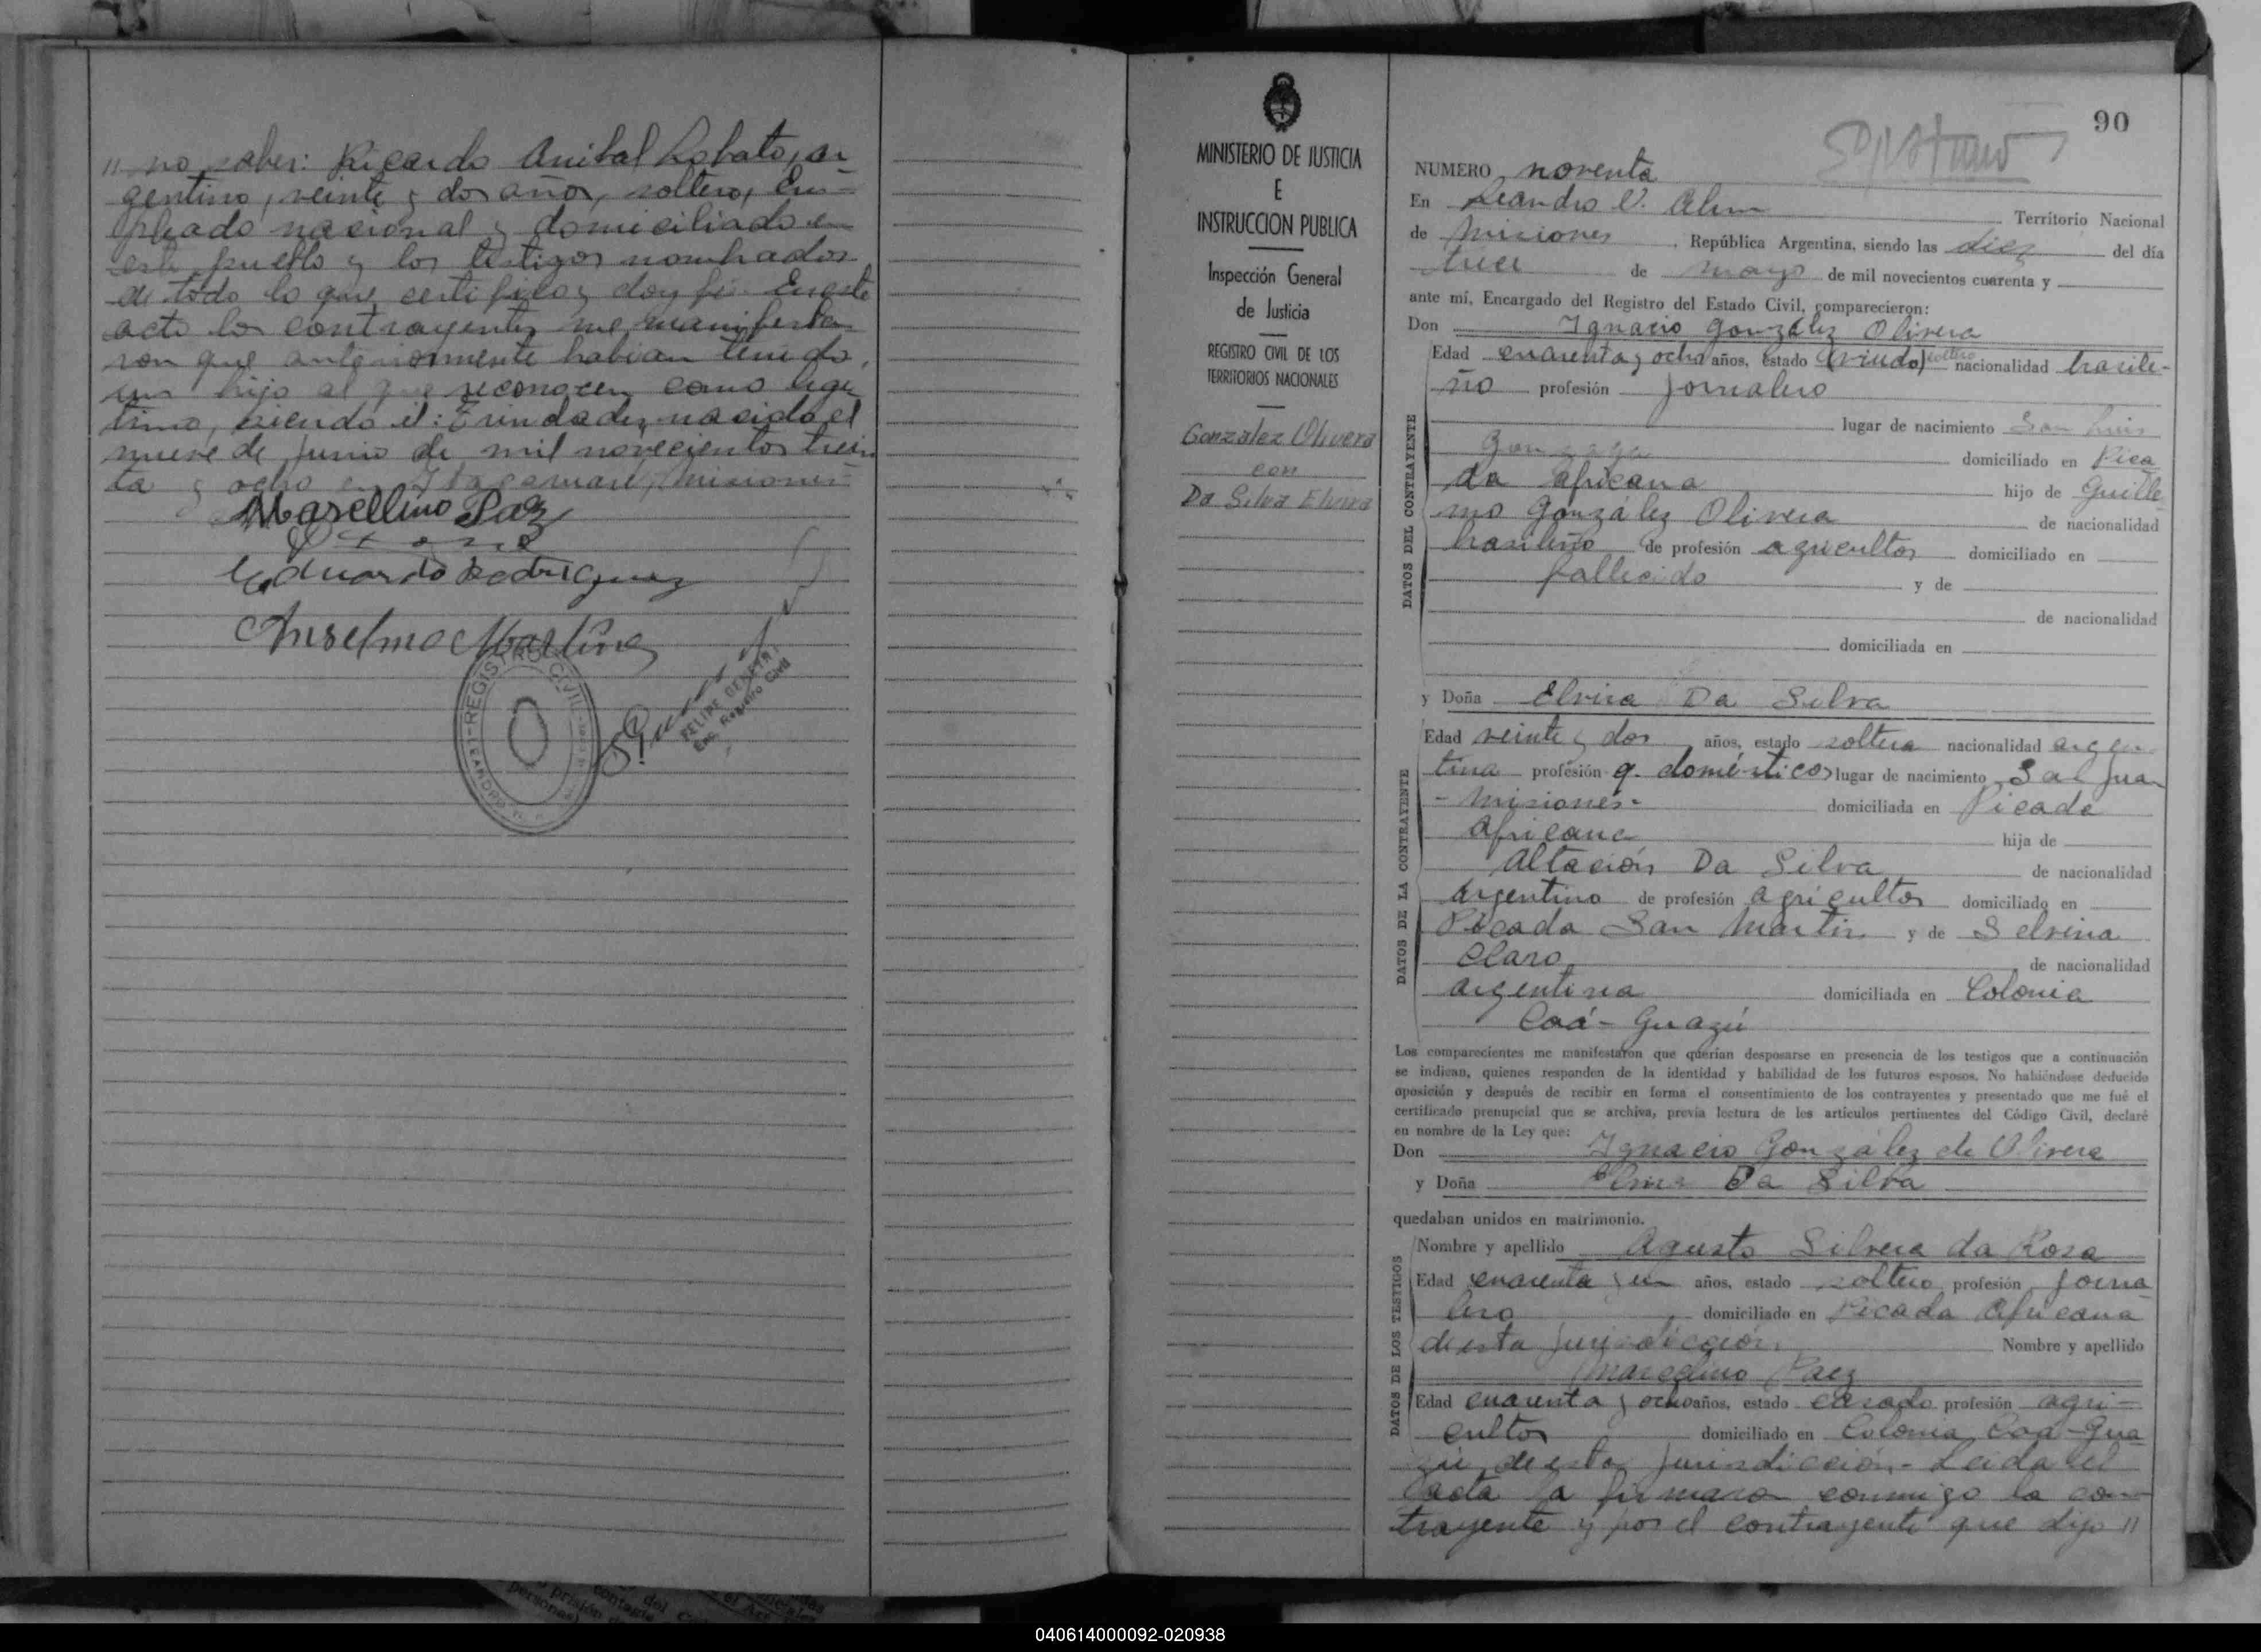 " no saber: Ricardo Anibal Lobato, ar
gentino, veinte y dos años, soltero, Em=
pleado nacional y domiciliado en
este pueblo y los testigos nombrados
de todo lo que certifico y doy fé. En este
acto los contrayentes me manifesta
ron que anteriormente habian tenido
un hijo al que reconocen como legi
timo, siendo él: Trindade, nacido el
nueve de Junio de mil novecientos trein
ta y ocho en Itacaruaré, Misiones=
Marcellino Paz
Eduardo Rodriguez
Anselmo Martinez
REGISTRO CIVIL
FELIPE GEMETRI
Enc. Registro Civil
MINISTERIO DE JUSTICIA
E
INSTRUCCION PUBLICA
Inspección General
de Justicia
REGISTRO CIVIL DE LOS
TERRITORIOS NACIONALES
Gonzalez Olivera
con
Da Silva Elvira
90
NUMERO noventa
En Leandro N. Alem Territorio Nacional
de Misiones, República Argentina, siendo las diez del día
trece de mayo de mil novecientos cuarenta y
ante mí, Encargado del Registro del Estado Civil, comparecieron:
Don Ignacio González Olivera
DATOS DEL CONTRAYENTE
Edad cuarenta y ocho años, estado (viudo) soltero nacionalidad brasile-
ño profesión Jornalero
lugar de nacimiento San Luis
Gonzaga domiciliado en Pica
da Africana hijo de Guille
mo González Olivera de nacionalidad
brasileño de profesión agricultor domiciliado en
fallecido y de
de nacionalidad
domiciliada en
y Doña Elvira Da Silva
DATOS DE LA CONTRAYENTE
Edad veinte y dos años, estado soltera nacionalidad argen
tina profesión q. domésticos lugar de nacimiento San Juan
- Misiones- domiciliada en Picada
Africana hija de
Altación Da Silva de nacionalidad
argentino de profesión agricultor domiciliado en
Picada San Martin y de Selvina
Claro de nacionalidad
argentina domiciliada en Colonia
Caá-Guazú
Los comparecientes me manifestaron que querían desposarse en presencia de los testigos que a continuación
se indican, quienes responden de la identidad y habilidad de los futuros esposos. No habiéndose deducido
oposición y después de recibir en forma el consentimiento de los contrayentes y presentado que me fué el
certificado prenupcial que se archiva, previa lectura de los artículos pertinentes del Código Civil, declaré
en nombre de la Ley que:
Don Ignacio González de Olivera
y Doña Elvira Da Silva
quedaban unidos en matrimonio.
DATOS DE LOS TESTIGOS
Nombre y apellido Agusto Silvera da Rosa
Edad cuarenta y un años, estado soltero profesión Jorna
lero domiciliado en Picada Africana
de esta jurisdicción Nombre y apellido
Marcelino Paez
Edad cuarenta y ocho años, estado casado profesión agri=
cultor domiciliado en Colonia Caá-Gua
zú de esta jurisdicción.- Leida el
acta la firmaron conmigo la con
trayente y por el contrayente que dijo "
040614000092-020938